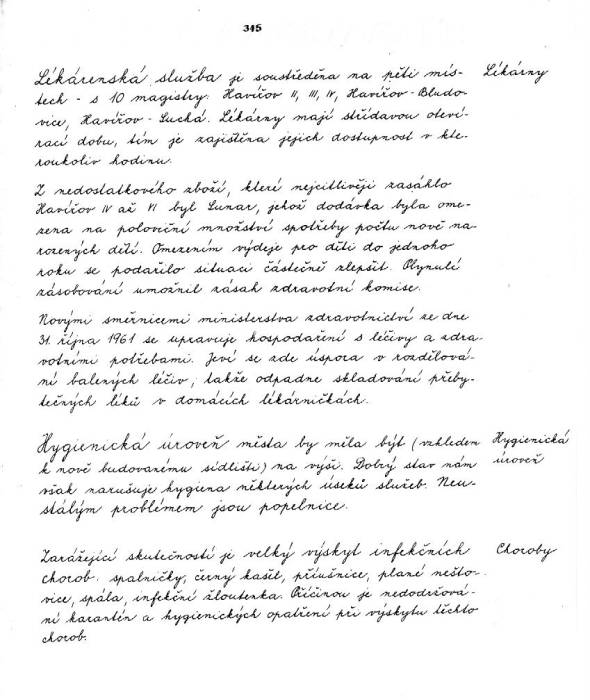 345
Lékárenská služba je soustředěna na pěti mís-
Lékárny
tech - s 10 magistry: Havířov II, III, IV, Havířov - Bludo-
vice, Havířov - Suchá. Lékárny mají střídavou oteví-
rací dobu, tím je zajištěna jejich dostupnost v kte-
roukoliv hodinu.
Z nedostatkového zboží, které nejcitlivěji zasáhlo
Havířov IV až VI byl Sunar, jehož dodávka byla ome-
zena na poloviční množství spotřeby počtu nově na-
rozených dětí. Omezením výdeje pro děti do jednoho
roku se podařilo situaci částečně zlepšit. Plynulé
zásobování umožnil zásah zdravotní komise.
Novými směrnicemi ministerstva zdravotnictví ze dne
31. října 1961 se upravuje hospodaření s léčivy a zdra-
votními potřebami. Jeví se zde úspora v rozdělová-
ní balených léčiv, takže odpadne skladování přeby-
tečných léků v domácích lékárničkách.
Hygienická úroveň města by měla být (vzhledem
Hygienická
k nově budovanému sídlišti) na výši. Dobrý stav nám
úroveň
však narušuje hygiena některých úseků služeb. Neu-
stálým problémem jsou popelnice.
Zarážející skutečností je velký výskyt infekčních
Choroby
chorob: spalničky, černý kašel, příušnice, plané nešto-
vice, spála, infekční žloutenka. Příčinou je nedodržová-
ní karantén a hygienických opatření při výskytu těchto
chorob.